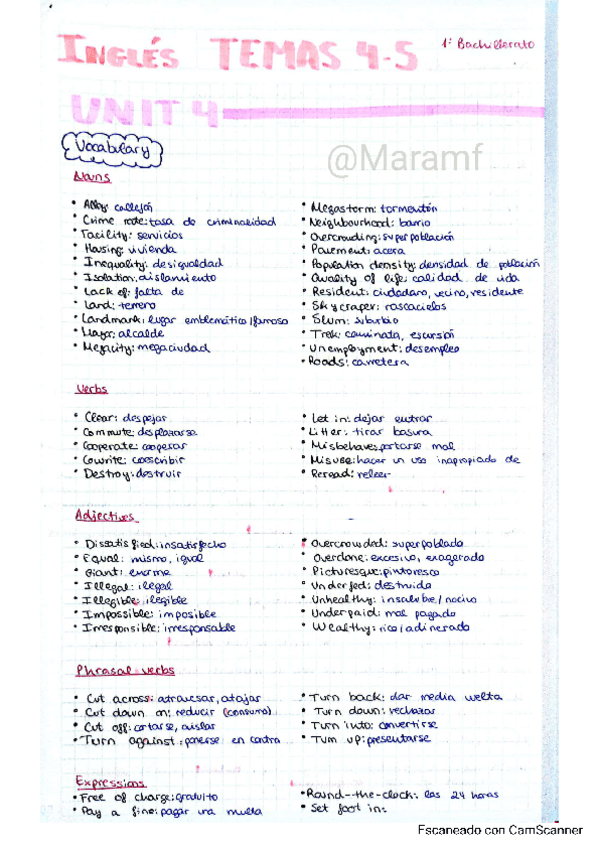 INGLÉS TEMAS 4-5
1º Bachillerato
UNIT 4
Vocabulary
@Maramf
Nouns
• Alley: callejón
• Crime rate: tasa de criminalidad
• Facility: servicios
• Housing: vivienda
• Inequality: desigualdad
• Isolation: aislamiento
• Lack of: falta de
• Land: terreno
• Landmark: lugar emblemático/famoso
• Mayor: alcalde
• Megacity: megaciudad
• Megastorm: tormentón
• Neighbourhood: barrio
• Overcrowding: superpoblación
• Pavement: acera
• Population density: densidad de población
• Quality of life: calidad de vida
• Resident: ciudadano, vecino, residente
• Skyscraper: rascacielos
• Slum: suburbio
• Trek: caminata, escursión
• Unemployment: desempleo
• Roads: carretera
Verbs
• Clear: despejar
• Commute: desplazarse
• Cooperate: cooperar
• Cowrite: coescribir
• Destroy: destruir
• Let in: dejar entrar
• Litter: tirar basura
• Misbehave: portarse mal
• Misuse: hacer un uso inapropiado de
• Reread: releer
Adjectives
• Dissatisfied: insatisfecho
• Equal: mismo, igual
• Giant: enorme
• Illegal: ilegal
• Illegible: ilegible
• Impossible: imposible
• Irresponsible: irresponsable
• Overcrowded: superpoblado
• Overdone: excesivo, exagerado
• Picturesque: pintoresco
• Underfed: destruido
• Unhealthy: insalubre/nocivo
• Underpaid: mal pagado
• Wealthy: rico/adinerado
Phrasal verbs
• Cut across: atravesar, atajar
• Cut down on: reducir (consumo)
• Cut off: cortarse, aislar
• Turn against: ponerse en contra
• Turn back: dar media vuelta
• Turn down: rechazar
• Turn into: convertirse
• Turn up: presentarse
Expressions
• Free of charge: gratuito
• Pay a fine: pagar una multa
• Round-the-clock: las 24 horas
• Set foot in:
Escaneado con CamScanner